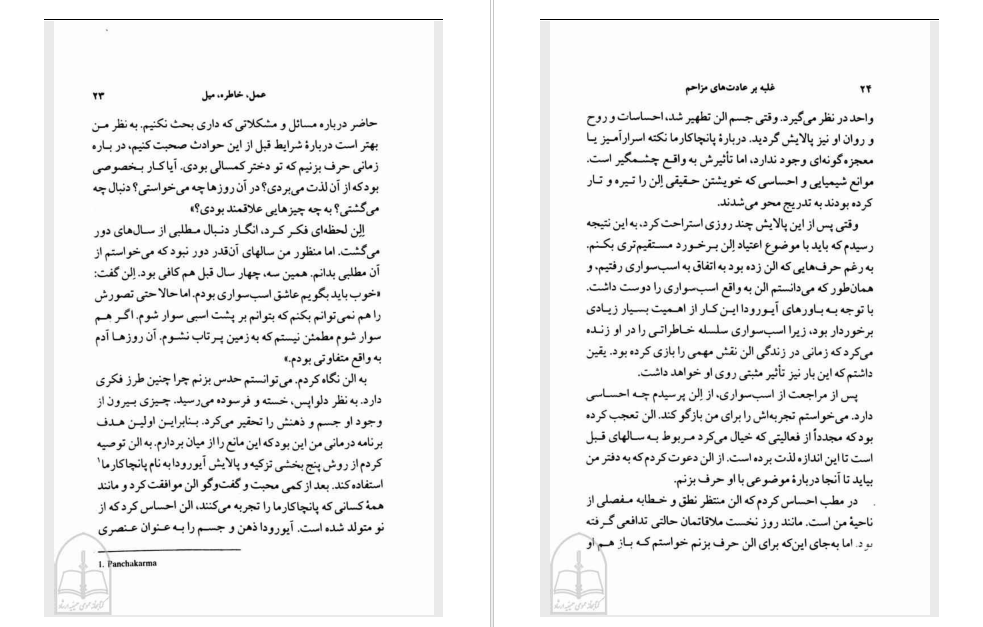 عمل، خاطره، میل
۲۳
حاضر درباره مسائل و مشکلاتی که داری بحث نکنیم. به نظر من
بهتر است دربارهٔ شرایط قبل از این حوادث صحبت کنیم، در باره
زمانی حرف بزنیم که تو دختر کمسالی بودی. آیا کار بخصوصی
بود که از آن لذت می‌بردی؟ در آن روزها چه می‌خواستی؟ دنبال چه
می‌گشتی؟ به چه چیزهایی علاقمند بودی؟»
اِلن لحظه‌ای فکر کرد، انگار دنبال مطلبی از سال‌های دور
می‌گشت. اما منظور من سالهای آن‌قدر دور نبود که می‌خواستم از
آن مطلبی بدانم. همین سه، چهار سال قبل هم کافی بود. اِلن گفت:
«خوب باید بگویم عاشق اسب‌سواری بودم. اما حالا حتی تصورش
را هم نمی‌توانم بکنم که بتوانم بر پشت اسبی سوار شوم. اگر هم
سوار شوم مطمئن نیستم که به زمین پرتاب نشوم. آن روزها آدم
به واقع متفاوتی بودم.»
به الن نگاه کردم. می‌توانستم حدس بزنم چرا چنین طرز فکری
دارد. به نظر دلواپس، خسته و فرسوده می‌رسید. چیزی بیرون از
وجود او جسم و ذهنش را تحقیر می‌کرد. بنابراین اولین هدف
برنامه درمانی من این بود که این مانع را از میان بردارم. به الن توصیه
کردم از روش پنج بخشی تزکیه و پالایش آیورودا به نام پانچاکارما۱
استفاده کند. بعد از کمی محبت و گفت‌وگو الن موافقت کرد و مانند
همهٔ کسانی که پانچاکارما را تجربه می‌کنند، الن احساس کرد که از
نو متولد شده است. آیورودا ذهن و جسم را به عنوان عنصری
1. Panchakarma
۲۴
غلبه بر عادت‌های مزاحم
واحد در نظر می‌گیرد. وقتی جسم الن تطهیر شد، احساسات و روح
و روان او نیز پالایش گردید. دربارهٔ پانچاکارما نکته اسرارآمیز یا
معجزه‌گونه‌ای وجود ندارد، اما تأثیرش به واقع چشمگیر است.
موانع شیمیایی و احساسی که خویشتن حقیقی اِلن را تیره و تار
کرده بودند به تدریج محو می‌شدند.
وقتی پس از این پالایش چند روزی استراحت کرد، به این نتیجه
رسیدم که باید با موضوع اعتیاد اِلن برخورد مستقیم‌تری بکنم.
به رغم حرف‌هایی که الن زده بود به اتفاق به اسب‌سواری رفتیم، و
همان‌طور که می‌دانستم الن به واقع اسب‌سواری را دوست داشت.
با توجه به باورهای آیورودا این کار از اهمیت بسیار زیادی
برخوردار بود، زیرا اسب‌سواری سلسله خاطراتی را در او زنده
می‌کرد که زمانی در زندگی الن نقش مهمی را بازی کرده بود. یقین
داشتم که این بار نیز تأثیر مثبتی روی او خواهد داشت.
پس از مراجعت از اسب‌سواری، از اِلن پرسیدم چه احساسی
دارد. می‌خواستم تجربه‌اش را برای من بازگو کند. الن تعجب کرده
بود که مجدداً از فعالیتی که خیال می‌کرد مربوط به سالهای قبل
است تا این اندازه لذت برده است. از الن دعوت کردم که به دفتر من
بیاید تا آنجا دربارهٔ موضوعی با او حرف بزنم.
در مطب احساس کردم که الن منتظر نطق و خطابه مفصلی از
ناحیهٔ من است. مانند روز نخست ملاقاتمان حالتی تدافعی گرفته
بود. اما به‌جای این‌که برای الن حرف بزنم خواستم که باز هم او